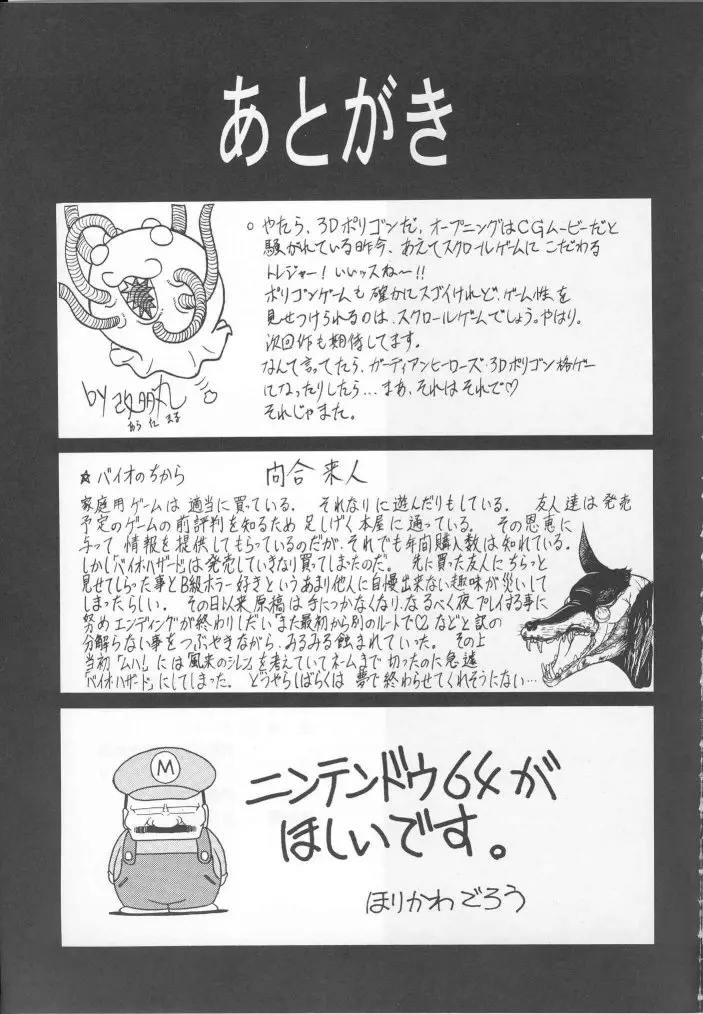 あとがき
○ やたら、3Dポリゴンだ、オープニングはCGムービーだと
騒がれている昨今、あえてスクロールゲームにこだわる
トレジャー！いいッスね〜！！
ポリゴンゲームも確かにスゴイけれど、ゲーム性を
見せつけられるのは、スクロールゲームでしょう。やはり。
次回作も期待してます。
なんて言ってたら、ガーディアンヒーローズ・3Dポリゴン格ゲー
になったりしたら…まあ、それはそれで♡
それじゃまた。
by
☆バイオのちから 向合来人
家庭用ゲームは適当に買っている。 それなりに遊んだりもしている。 友人達は発売
予定のゲームの前評判を知るため足しげく本屋に通っている。 その恩恵に
与って情報を提供してもらっているのだが、それでも年間購入数は知れている。
しかし「バイオハザード」は発売していきなり買ってしまったのだ。 先に買った友人にちらっと
見せてしらった事とB級ホラー好きというあまり他人に自慢出来ない趣味が災いして
しまったらしい。 その日以来原稿は手につかなくなり、なるべく夜プレイする事に
努めエンディングが終わりしだい「また最初から別のルートで♡」などと訳の
分解らない事をつぶやきながら、みるみる蝕まれていった。 その上
当初「ムハ！」には「風来のシレン」を考えていてネームまで切ったのに急遽
「バイオハザード」にしてしまった。 どうやらしばらくは夢で終わらせてくれそうにない…
M
ニンテンドウ64が
ほしいです。
ほりかわごろう